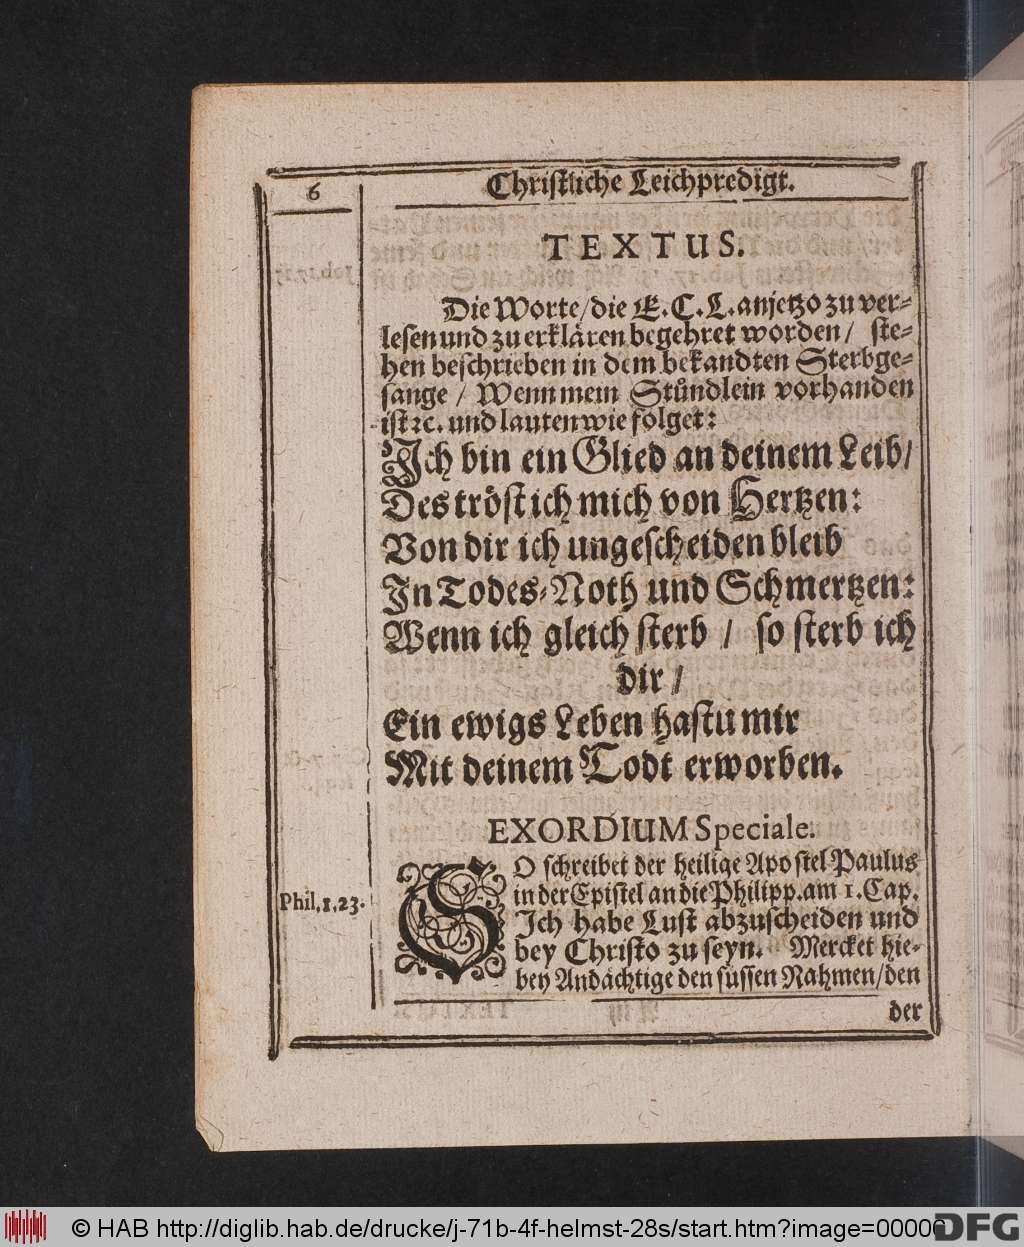 6
Christliche Leichpredigt.
TEXTUS.
Die Worte/die E.C.L. anjetzo zu ver-
lesen und zu erklären begehret worden/ ste-
hen beschrieben in dem bekandten Sterbge-
sange / Wenn mein Stündlein vorhanden
ist ꝛc. und lauten wie folget:
Ich bin ein Glied an deinem Leib/
Des tröst ich mich von Hertzen:
Von dir ich ungescheiden bleib
In Todes-Noth und Schmertzen:
Wenn ich gleich sterb / so sterb ich
dir /
Ein ewigs Leben hastu mir
Mit deinem Todt erworben.
EXORDIUM Speciale.
Phil. 1, 23.
SO schreibet der heilige Apostel Paulus
in der Epistel an die Philipp. am 1. Cap.
Ich habe Lust abzuscheiden und
bey Christo zu seyn. Mercket hie-
bey Andächtige den süssen Nahmen/den
der
© HAB http://diglib.hab.de/drucke/j-71b-4f-helmst-28s/start.htm?image=00006
DFG